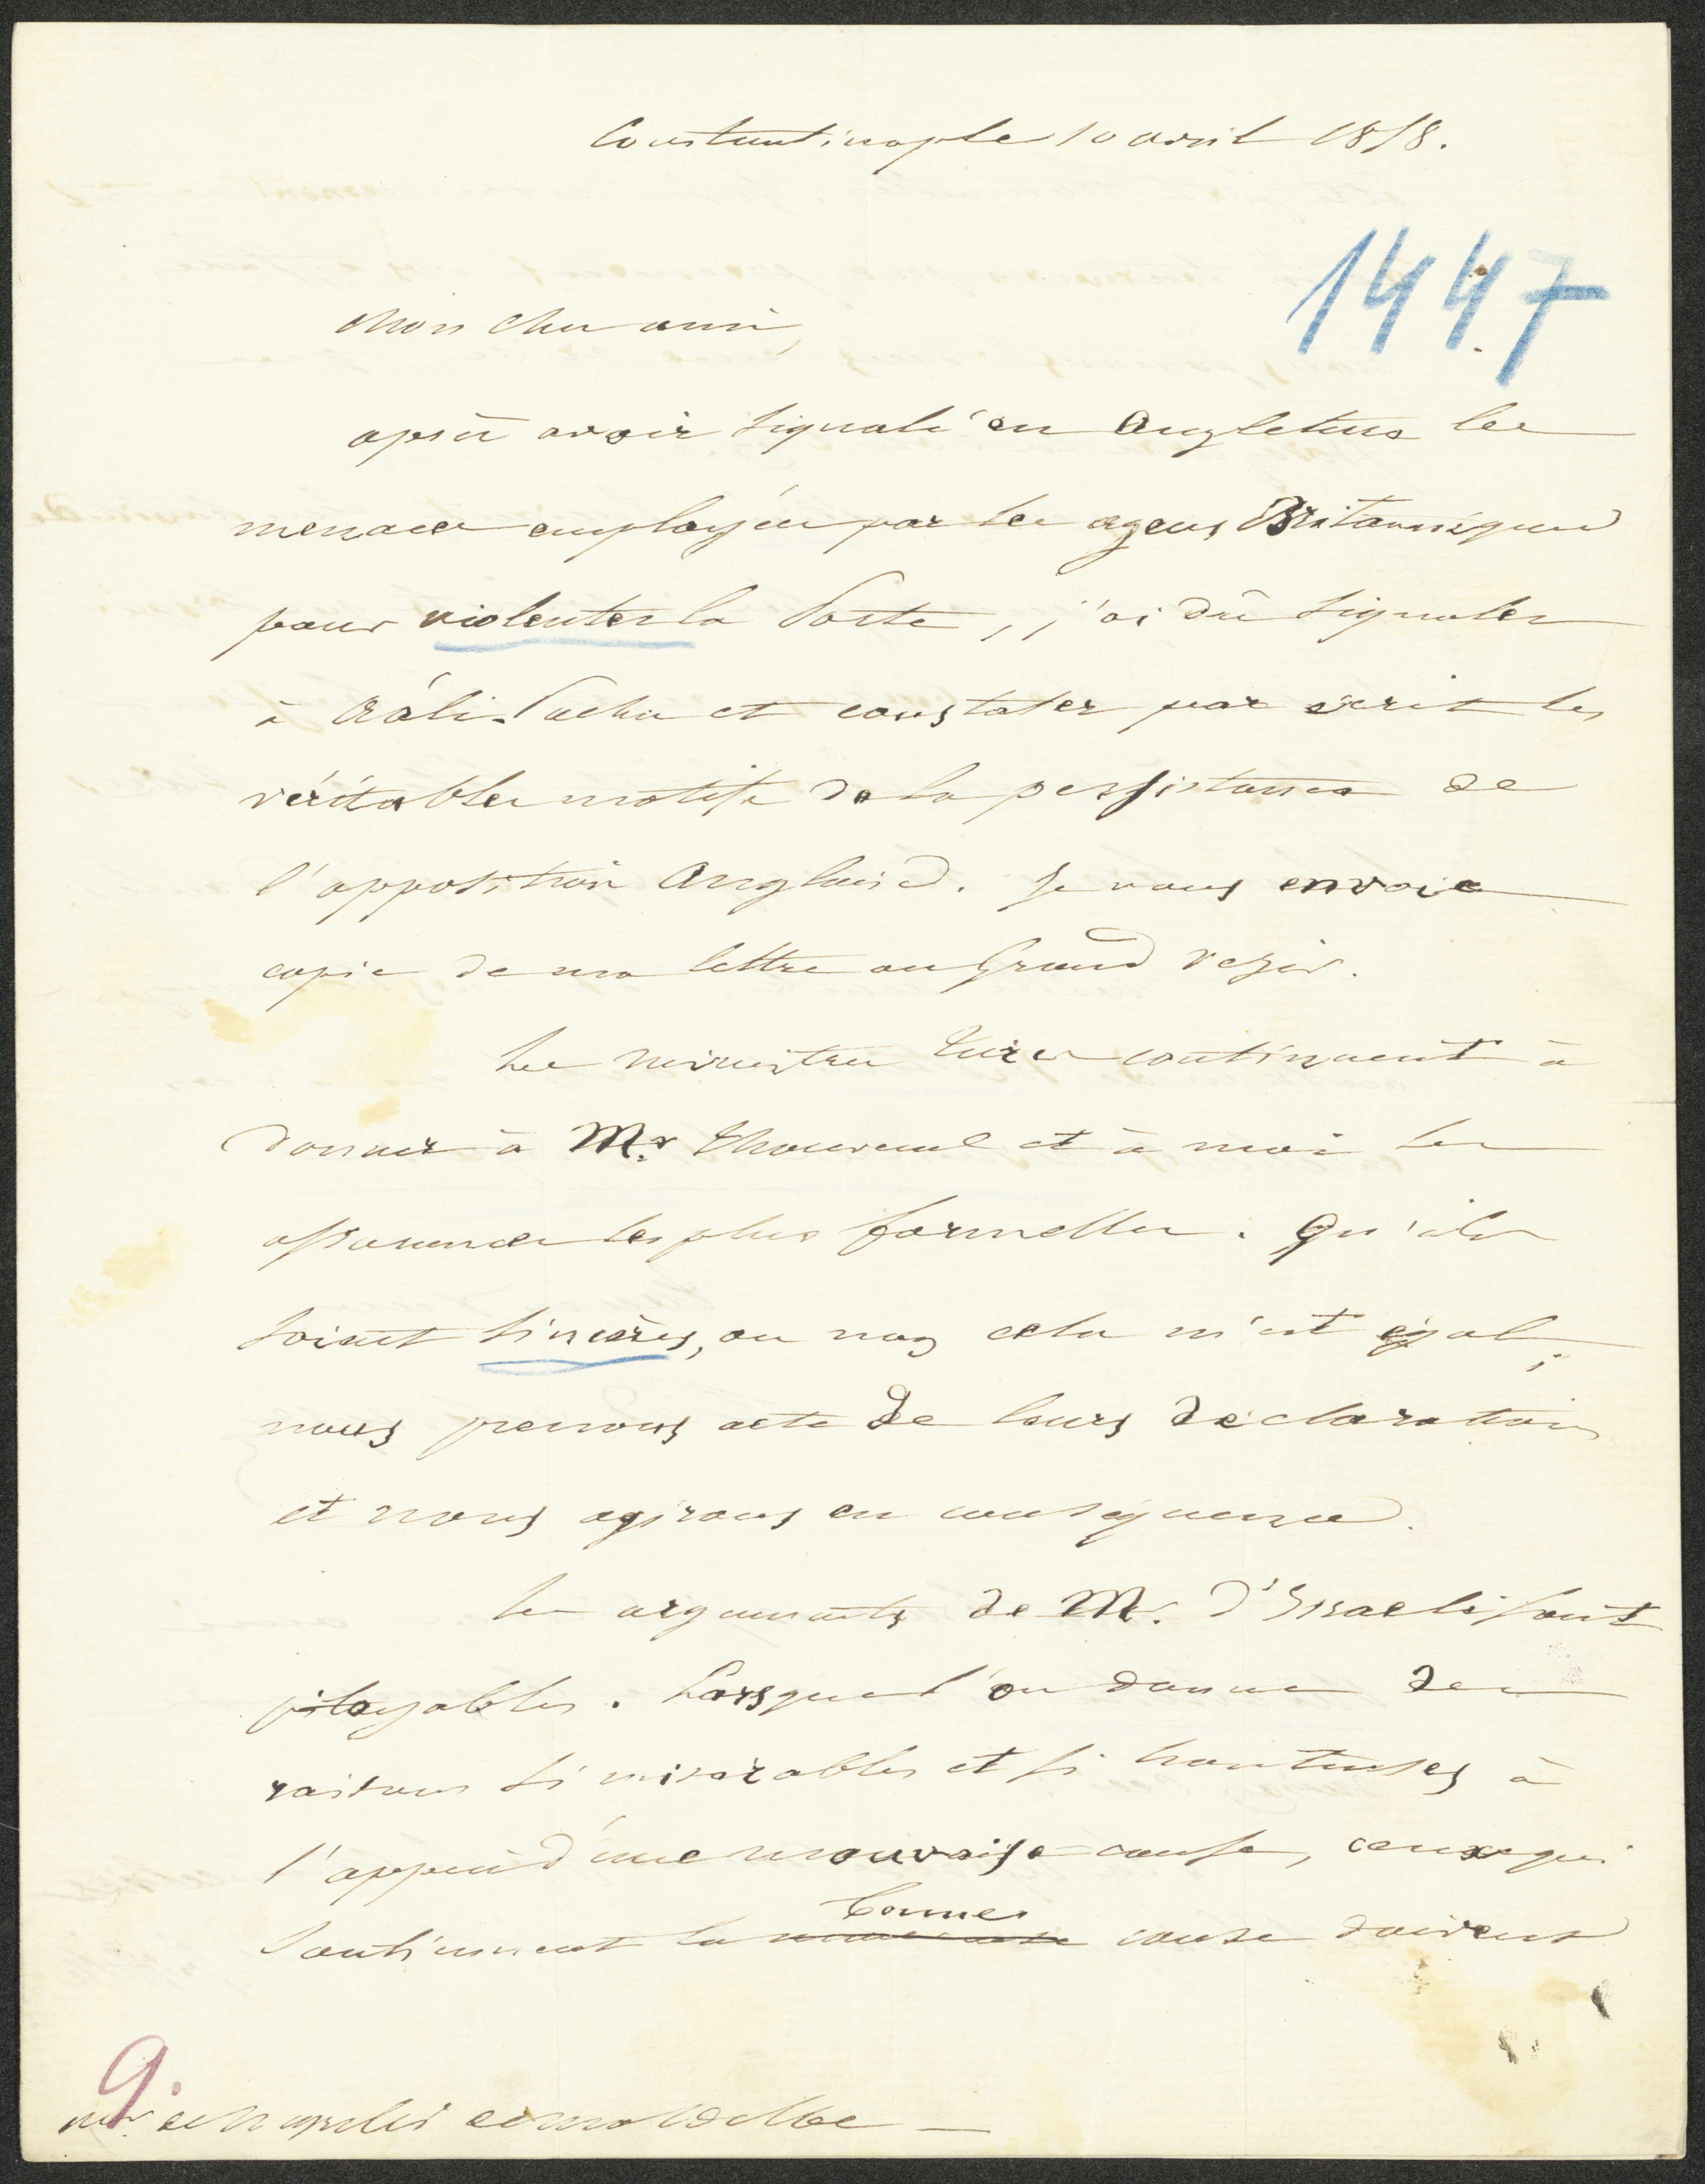 Constantinople 10 avril 1858.
1447
Mon cher ami,
après avoir signalé en Angleterre les
menaces employées par les agens Britanniques
pour violenter la Porte, j'ai dû signaler
à Aáli Pacha et constater par écrit les
véritables motifs de la persistance de
l'opposition Anglaise. Je vous envoie
copie de ma lettre au Grand Vezir.
Les ministres Turcs continuent à
donner à Mr. Thouvenel et à moi les
assurances les plus formelles. Qu'ils
soient sincères, ou non cela m'est égal;
nous prenons acte de leurs déclarations
et nous agirons en conséquence.
Les arguments de M. d'Israeli sont
pitoyables. Lorsque l'on donne des
raisons si misérables et si honteuses à
l'appui d'une mauvaise cause, ceux qui
bonne
soutiennent la mauvaise cause doivent
9.